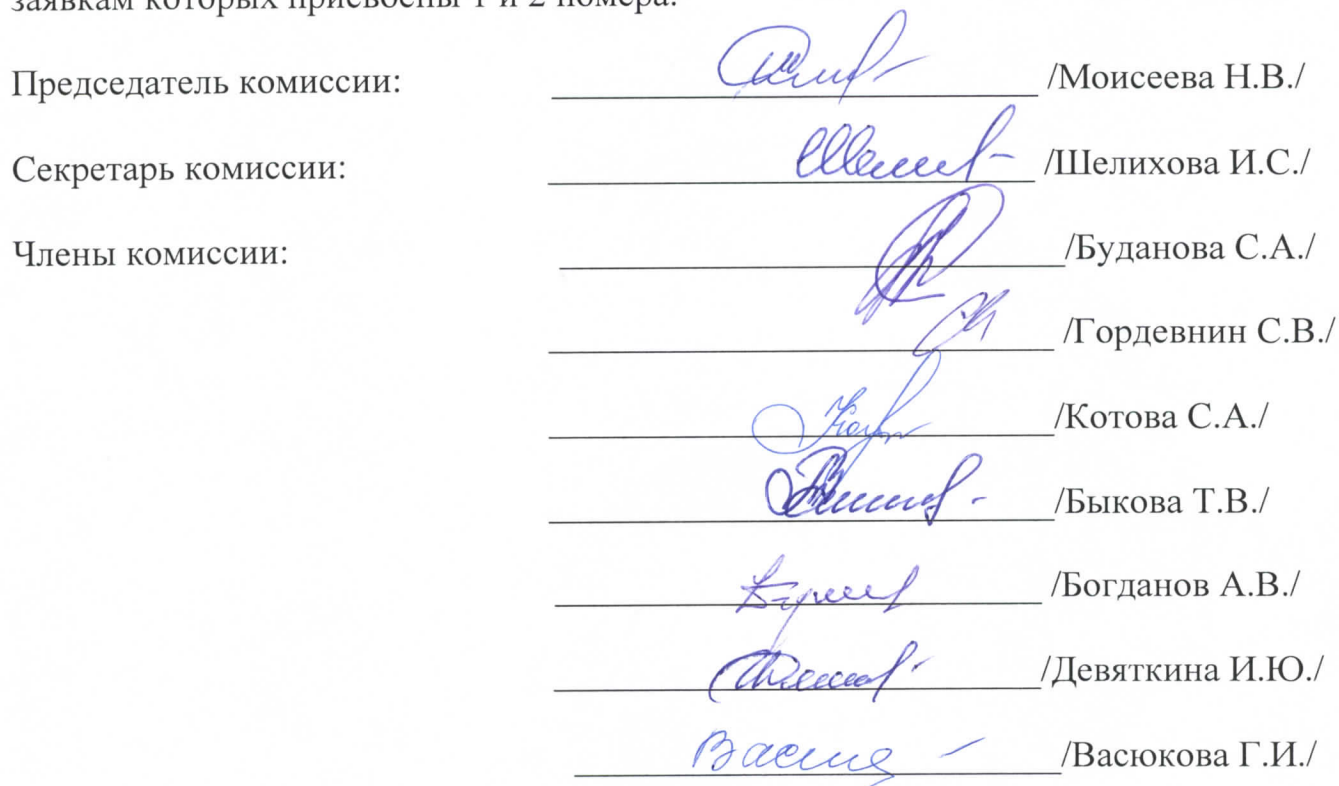 заявкам которых присвоены 1 и 2 номера.
Председатель комиссии: /Моисеева Н.В./
Секретарь комиссии: /Шелихова И.С./
Члены комиссии: /Буданова С.А./
/Гордевнин С.В./
/Котова С.А./
/Быкова Т.В./
/Богданов А.В./
/Девяткина И.Ю./
/Васюкова Г.И./